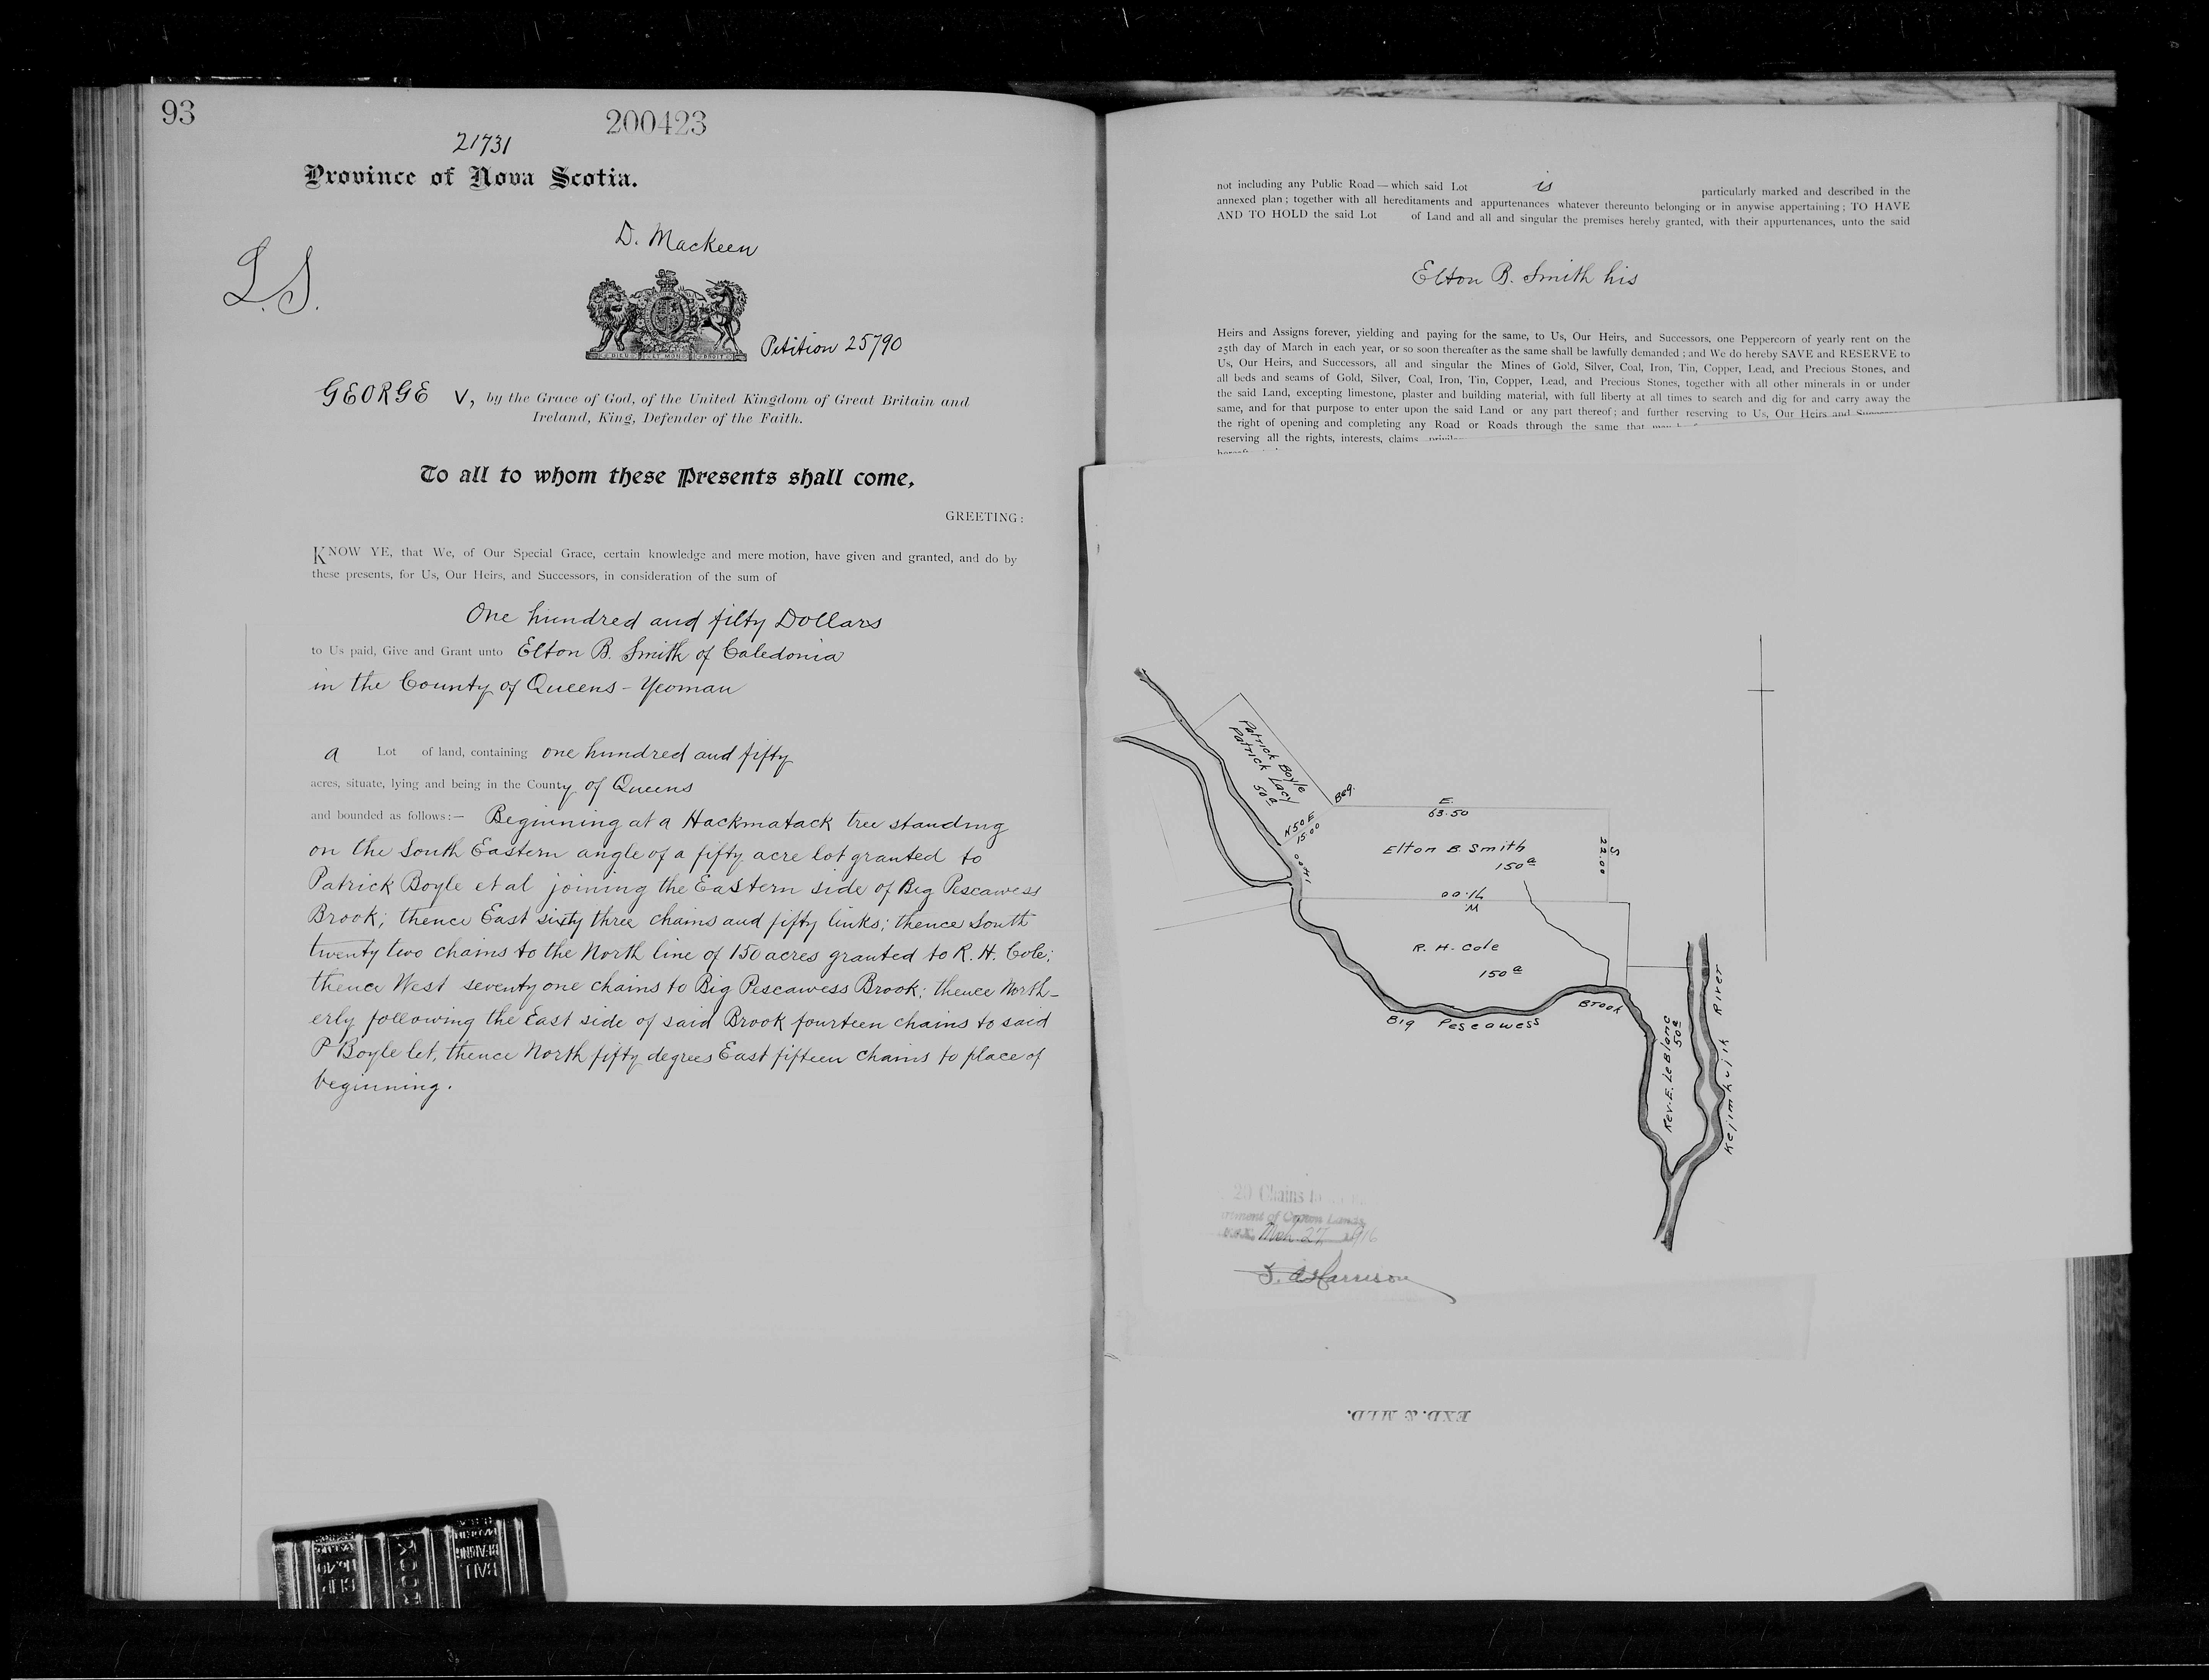 93
200423
21731
Province of Nova Scotia.
D. Mackeen
L.S.
DIEU ET MON DROIT
Petition 25790
GEORGE V, by the Grace of God, of the United Kingdom of Great Britain and
Ireland, King, Defender of the Faith.
To all to whom these Presents shall come,
GREETING:
KNOW YE, that We, of Our Special Grace, certain knowledge and mere motion, have given and granted, and do by
these presents, for Us, Our Heirs, and Successors, in consideration of the sum of
One hundred and fifty Dollars
to Us paid, Give and Grant unto Elton B. Smith of Caledonia
in the County of Queens - Yeoman
a Lot of land, containing one hundred and fifty
acres, situate, lying and being in the County of Queens
and bounded as follows:— Beginning at a Hackmatack tree standing
on the South Eastern angle of a fifty acre lot granted to
Patrick Boyle et al joining the Eastern side of Big Pescawess
Brook; thence East sixty three chains and fifty links; thence South
twenty two chains to the North line of 150 acres granted to R. H. Cole;
thence West seventy one chains to Big Pescawess Brook; thence North-
erly following the East side of said Brook fourteen chains to said
P Boyle lot, thence North fifty degrees East fifteen chains to place of
beginning.
not including any Public Road — which said Lot is particularly marked and described in the
annexed plan; together with all hereditaments and appurtenances whatever thereunto belonging or in anywise appertaining; TO HAVE
AND TO HOLD the said Lot of Land and all and singular the premises hereby granted, with their appurtenances, unto the said
Elton B. Smith his
Heirs and Assigns forever, yielding and paying for the same, to Us, Our Heirs, and Successors, one Peppercorn of yearly rent on the
25th day of March in each year, or so soon thereafter as the same shall be lawfully demanded; and We do hereby SAVE and RESERVE to
Us, Our Heirs, and Successors, all and singular the Mines of Gold, Silver, Coal, Iron, Tin, Copper, Lead, and Precious Stones, and
all beds and seams of Gold, Silver, Coal, Iron, Tin, Copper, Lead, and Precious Stones, together with all other minerals in or under
the said Land, excepting limestone, plaster and building material, with full liberty at all times to search and dig for and carry away the
same, and for that purpose to enter upon the said Land or any part thereof; and further reserving to Us, Our Heirs and
the right of opening and completing any Road or Roads through the same that
reserving all the rights, interests, claims
Patrick Boyle
Patrick Lacy
50a
Beg.
E.
63.50
N50E
15.00
Elton B. Smith
150a
S
22.00
14.00
71.00
W.
R. H. Cole
150a
Big Pescawess Brook
Rev. E. LeBlanc
50a
Kejimkujik River
20 Chains
of Crown Lands
Mch 27 1916
EXD. & MLD.